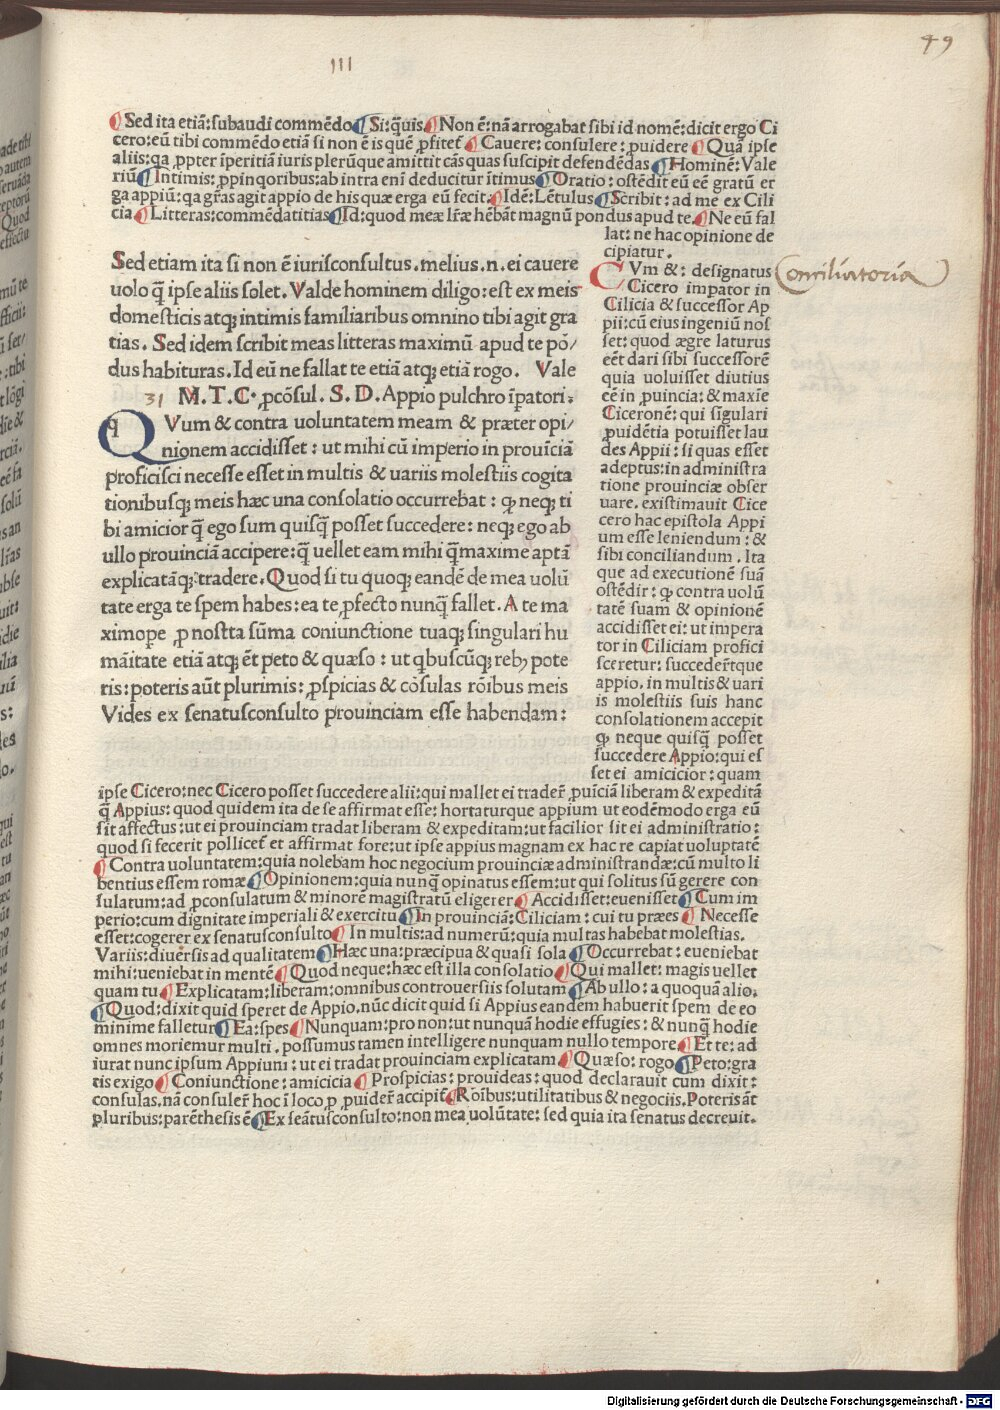 49
III
¶Sed ita etiā: subaudi commēdo¶Si: q̄uis¶Non ē: nā arrogabat sibi id nomē: dicit ergo Ci
cero: eū tibi commēdo etiā si non ē is quē ꝓfiteť ¶Cauere: consulere: ꝓuidere ¶Quā ipse
aliis: qa ꝓpter īperitiā iuris plerūque amittit cās quas suscipit defendēdas ¶Hominē: Vale
riū¶Intimis: ꝓpinqoribus: ab intra enī deducitur ītimus¶Oratio: ostēdit eū eē gratū er
ga appiū: qa gr̄as agit appio de his quæ erga eū fecit. ¶Idē: Lētulus ¶Scribit: ad me ex Cili
cia ¶Litteras: commēdatitias ¶Id: quod meæ lr̄æ hēbāt magnū pondus apud te. ¶Ne eū fal
lat: ne hac opinione de
cipiatur.
Sed etiam ita si non ē iurisconsultus. melius. n. ei cauere
uolo q̄ ipse aliis solet. Valde hominem diligo: est ex meis
domesticis atq; intimis familiaribus omnino tibi agit gra
tias. Sed idem scribit meas litteras maximū apud te pō/
dus habituras. Id eū ne fallat te etiā atq; etiā rogo. Vale
31 M. T. C. ꝓcōsul. S. D. Appio pulchro īpatori.
qVum & contra voluntatem meam & præter opi/
nionem accidisset: ut mihi cū imperio in prouīciā
proficisci necesse esset in multis & uariis molestiis cogita
tionibusq; meis hæc una consolatio occurrebat: ꝙ neq; ti
bi amicior q̄ ego sum quisq̄ posset succedere: neq; ego ab
ullo prouinciā accipere: q̄ uellet eam mihi q̄maxime aptā
explicatāq; tradere. Quod si tu quoq; eandē de mea uolū
tate erga te spem habes: ea te ꝓfecto nunq̄ fallet. A te ma
ximope ꝓ nostta sūma coniunctione tuaq; singulari hu
māitate etiā atq; ēt peto & quæso: ut qbuscūq; reb; pote
ris: poteris aūt plurimis: ꝓspicias & cōsulas rōibus meis
Vides ex senatusconsulto prouinciam esse habendam:
CVm &: designatus
Conciliatoria
Cicero impator in
Cilicia & successor Ap
pii: cū eius ingeniū nos
set: quod ægre laturus
eēt dari sibi successorē
quia uoluisset diutius
eē in ꝓuincia: & maxīe
Ciceronē: qui sigulari
ꝓuidētia potuisset lau
des Appii: si quas esset
adeptus: in administra
tione prouinciæ obser
uare. existimauit Cice
cero hac epistola Appi
um esse leniendum: &
sibi conciliandum. Ita
que ad executionē suā
ostēdir: ꝙ contra uolū
tatē suam & opinionē
accidisset ei: ut impera
tor in Ciliciam profici
sceretur: succederetque
appio. in multis & uari
is molestiis suis hanc
consolationem accepit
ꝙ neque quisq̄ posset
succedere Appio: qui es
set ei amicicior: quam
ipse Cicero: nec Cicero posset succedere alii: qui mallet ei trader̄ ꝓuīciā liberam & expeditā
q̄ Appius: quod quidem ita de se affirmat esse: hortaturque appium ut eodēmodo erga eū
sit affectus: ut ei prouinciam tradat liberam & expeditam: ut facilior sit ei administratio:
quod si fecerit pollicet̄ et affirmat fore: ut ipse appius magnam ex hac re capiat uoluptatē
¶Contra uoluntatem: quia nolebam hoc negocium prouinciæ administrandæ: cū multo li
bentius essem romæ ¶Opinionem: quia nunq̄ opinatus essem: ut qui solitus sū gerere con
sulatum: ad ꝓconsulatum & minorē magistratū eligerer ¶Accidisset: euenisset ¶Cum im
perio: cum dignitate imperiali & exercitu ¶In prouinciā: Ciliciam: cui tu præes ¶Necesse
esset: cogerer ex senatusconsulto ¶In multis: ad numerū: quia multas habebat molestias.
Variis: diuersis ad qualitatem ¶Hæc una: præcipua & quasi sola ¶Occurrebat: eueniebat
mihi: ueniebat in mentē ¶Quod neque: hæc est illa consolatio ¶Qui mallet: magis uellet
quam tu ¶Explicatam: liberam: omnibus controuersiis solutam ¶Ab ullo: a quoquā alio.
¶Quod: dixit quid speret de Appio. nūc dicit quid si Appius eandem habuerit spem de eo
minime falletur ¶Ea: spes ¶Nunquam: pro non: ut nunquā hodie effugies: & nunq̄ hodie
omnes moriemur multi. possumus tamen intelligere nunquam nullo tempore ¶Et te: ad
iurat nunc ipsum Appium: ut ei tradat prouinciam explicatam ¶Quæso: rogo ¶Peto: gra
tis exigo ¶Coniunctione: amicicia ¶Prospicias: prouideas: quod declarauit cum dixit:
consulas. nā consuler̄ hoc ī loco ꝓ ꝓuider̄ accipit̄ ¶Rōibus: utilitatibus & negociis. Poteris āt
pluribus: parēthesis ē ¶Ex seātusconsulto: non mea uolūtate: sed quia ita senatus decreuit.
Digitalisierung gefördert durch die Deutsche Forschungsgemeinschaft - DFG